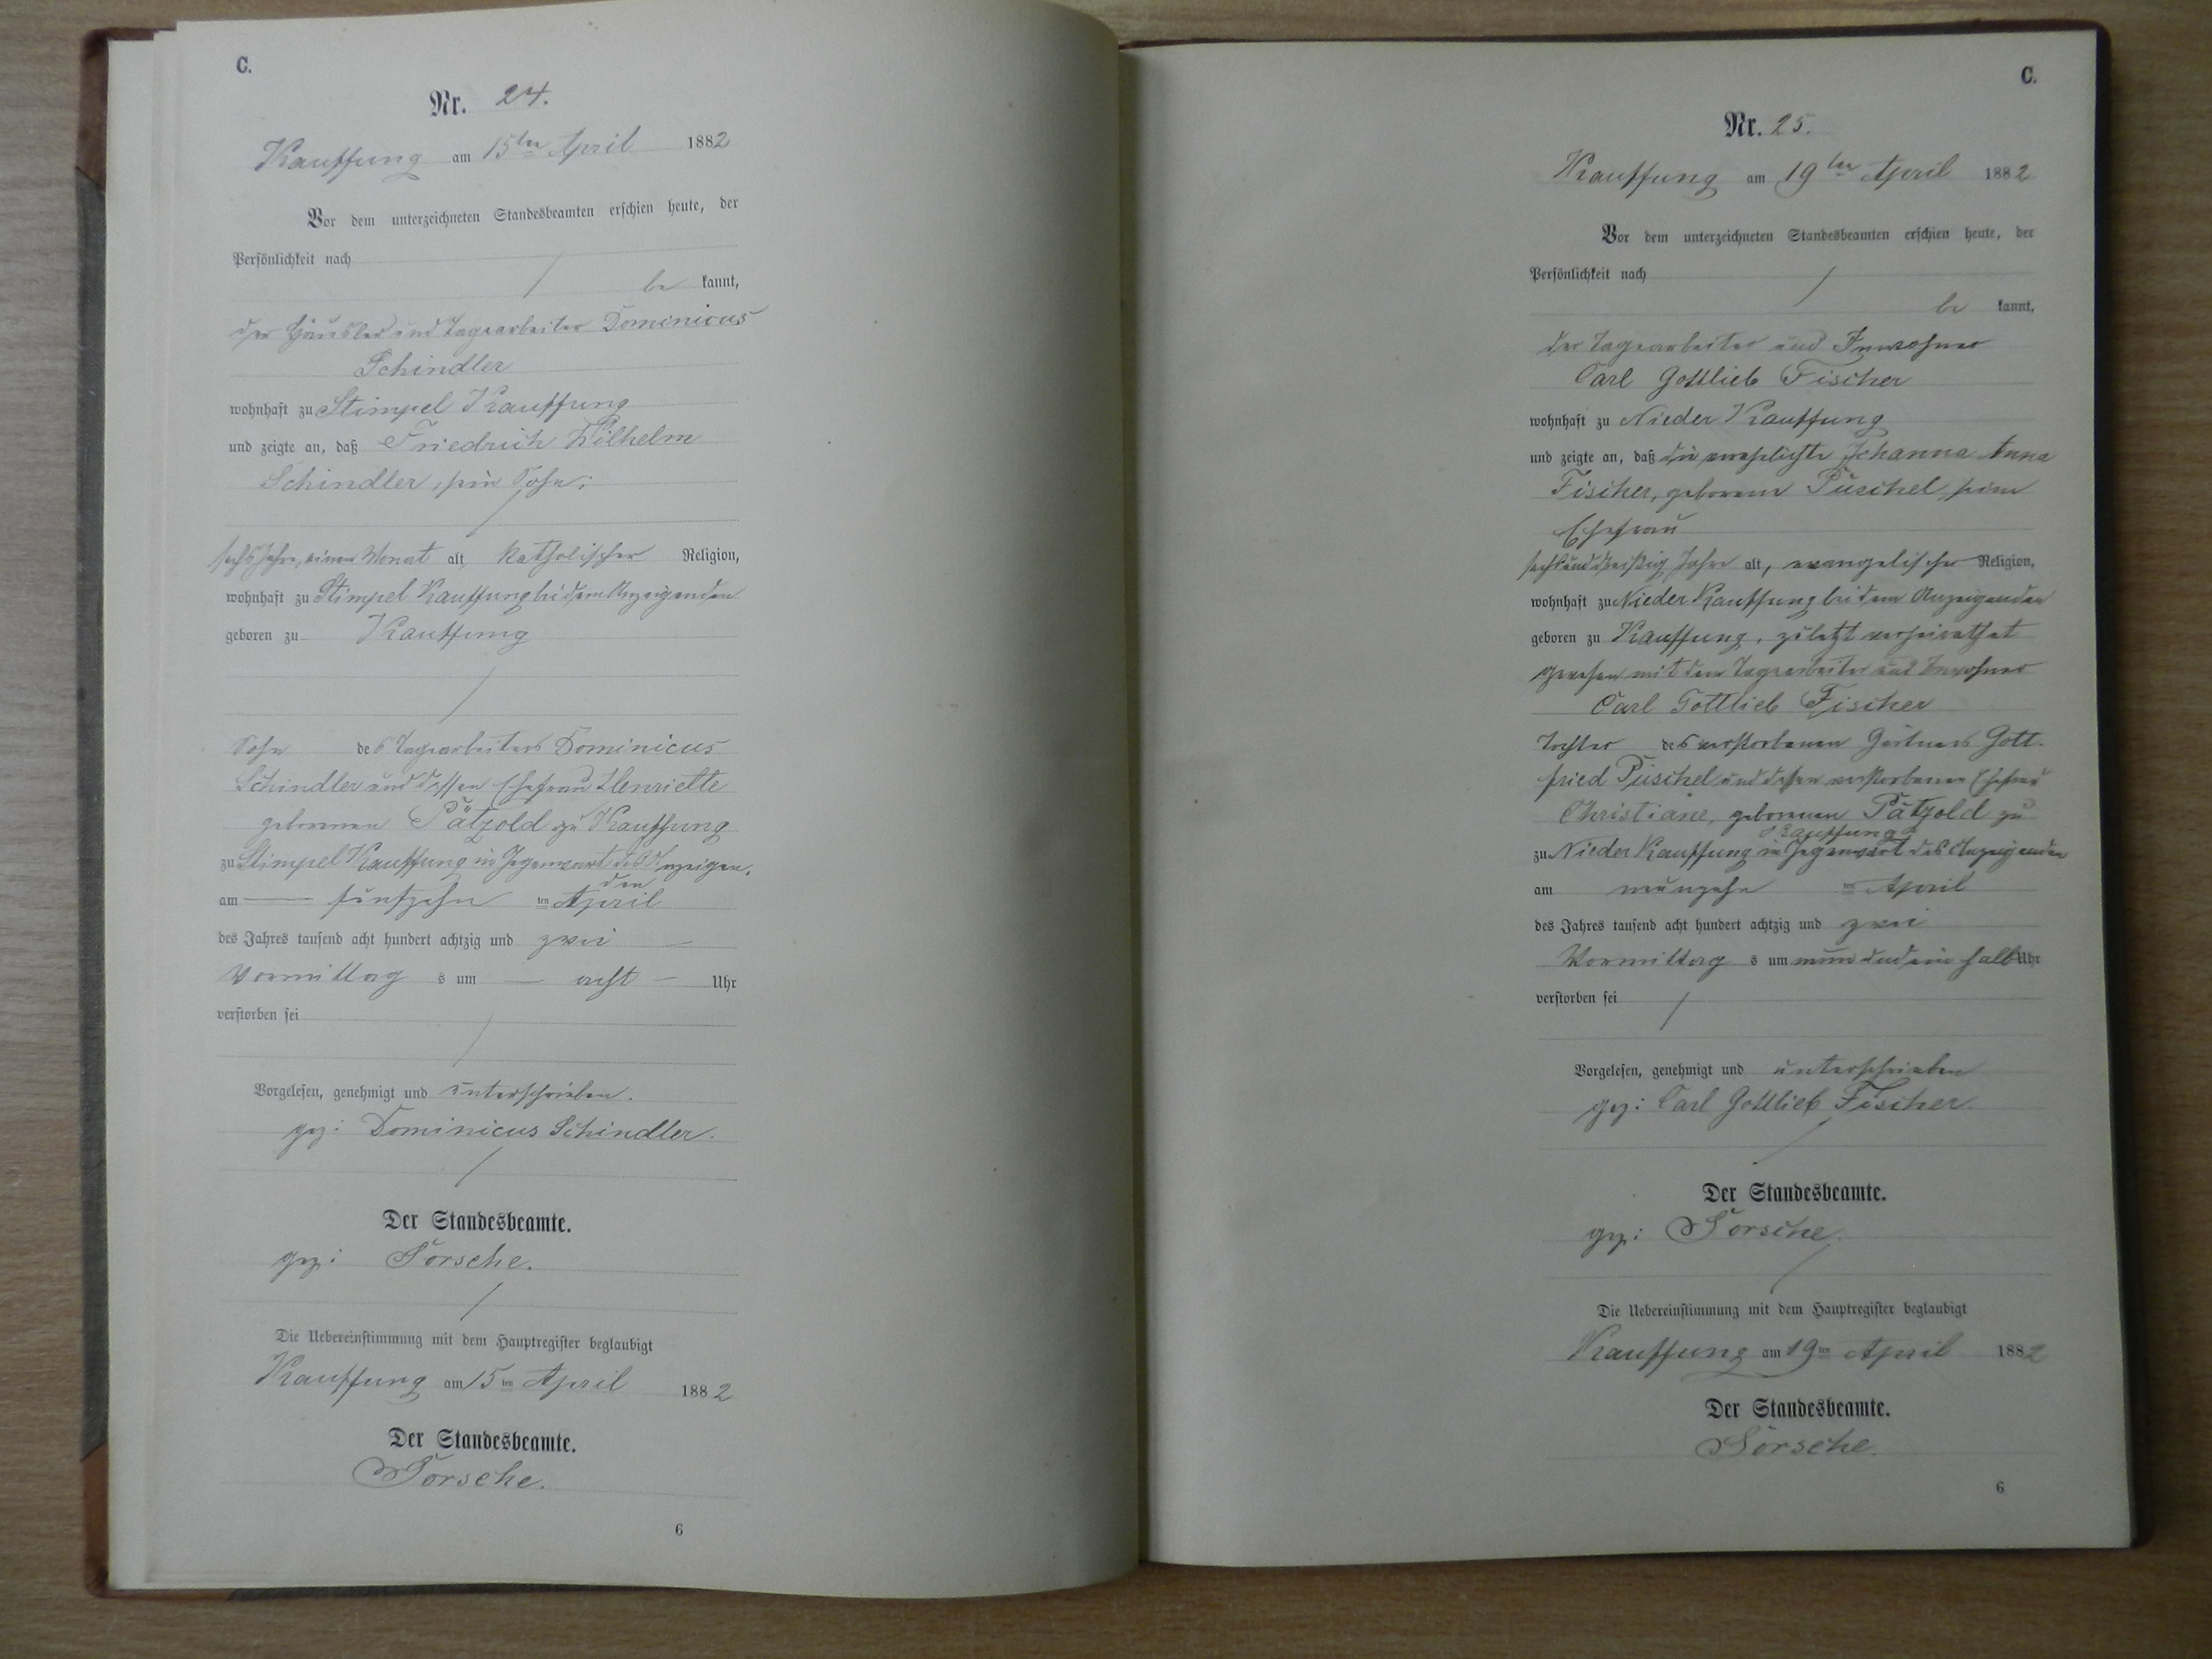 C.
Nr. 24.
Kauffung am 15ten April 1882
Vor dem unterzeichneten Standesbeamten erschien heute, der
Persönlichkeit nach
be kannt,
der Häusler und Tagearbeiter Dominicus
Schindler
wohnhaft zu Stimpel Kauffung
und zeigte an, daß Friedrich Wilhelm
Schindler, sein Sohn;
sechs Jahre, einen Monat alt, katholischer Religion,
wohnhaft zu Stimpel Kauffung bei dem Anzeigenden
geboren zu Kauffung
Sohn des Tagearbeiters Dominicus
Schindler und dessen Ehefrau Henriette
geborenen Pätzold zu Kauffung
zu Stimpel Kauffung in Gegenwart des Anzeigen-
den
am fünfzehn ten April
des Jahres tausend acht hundert achtzig und zwei
Vormittag s um acht Uhr
verstorben sei
Vorgelesen, genehmigt und unterschrieben.
gez: Dominicus Schindler.
Der Standesbeamte.
gez: Torsche.
Die Uebereinstimmung mit dem Hauptregister beglaubigt
Kauffung am 15 ten April 1882
Der Standesbeamte.
Torsche.
6
C.
Nr. 25.
Kauffung am 19ten April 1882
Vor dem unterzeichneten Standesbeamten erschien heute, der
Persönlichkeit nach
be kannt,
der Tagearbeiter und Inwohner
Carl Gottlieb Fischer
wohnhaft zu Nieder Kauffung
und zeigte an, daß die verehelichte Johanna Anna
Fischer, geborene Püschel, seine
Ehefrau
sechsunddreißig Jahre alt, evangelischer Religion,
wohnhaft zu Nieder Kauffung bei dem Anzeigenden
geboren zu Kauffung, zuletzt verheirathet
gewesen mit dem Tagearbeiter und Inwohner
Carl Gottlieb Fischer
Tochter des verstorbenen Gärtners Gott-
fried Püschel und dessen verstorbenen Ehefrau
Christiane, geborenen Pätzold zu
Kauffung
zu Nieder Kauffung in Gegenwart des Anzeigenden
am neunzehn ten April
des Jahres tausend acht hundert achtzig und zwei
Vormittag s um neun und ein halb Uhr
verstorben sei
Vorgelesen, genehmigt und unterschrieben
gez: Carl Gottlieb Fischer.
Der Standesbeamte.
gez: Torsche.
Die Uebereinstimmung mit dem Hauptregister beglaubigt
Kauffung am 19 ten April 1882
Der Standesbeamte.
Torsche.
6